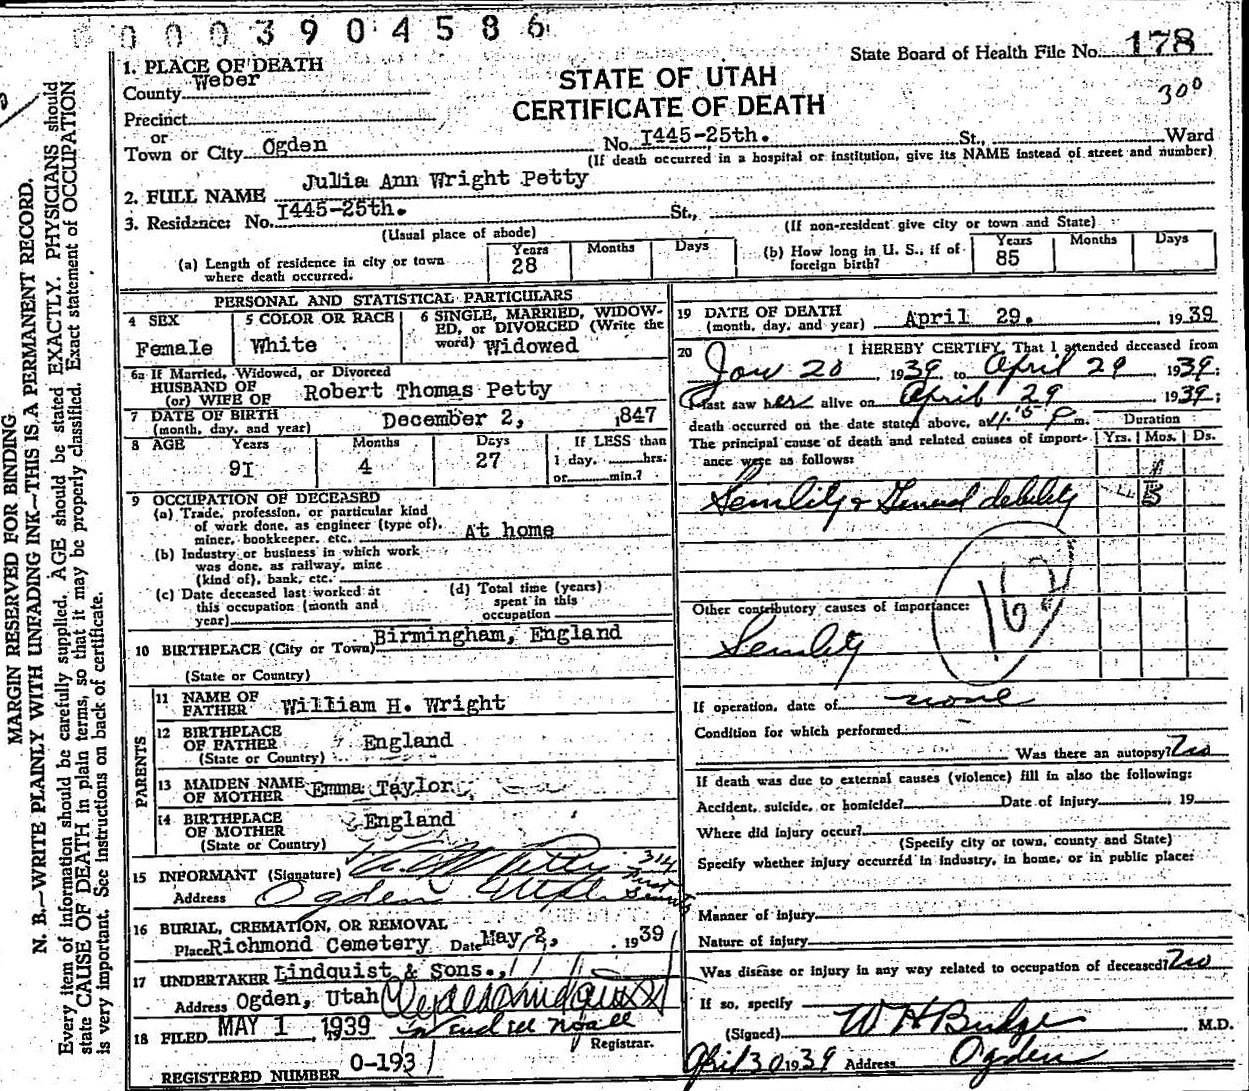 0003904586
State Board of Health File No. 178
300
STATE OF UTAH
CERTIFICATE OF DEATH
1. PLACE OF DEATH
County Weber
Precinct
or
Town or City Ogden No. I445-25th. St., Ward
(If death occurred in a hospital or institution, give its NAME instead of street and number)
2. FULL NAME Julia Ann Wright Petty
3. Residence: No. I445-25th. St.,
(Usual place of abode) (If non-resident give city or town and State)
(a) Length of residence in city or town where death occurred. Years 28 Months Days
(b) How long in U. S., if of foreign birth? Years 85 Months Days
PERSONAL AND STATISTICAL PARTICULARS
4 SEX Female
5 COLOR OR RACE White
6 SINGLE, MARRIED, WIDOWED, or DIVORCED (Write the word) Widowed
6a If Married, Widowed, or Divorced
HUSBAND OF
(or) WIFE OF Robert Thomas Petty
7 DATE OF BIRTH
(month, day, and year) December 2, 1847
8 AGE Years 9I Months 4 Days 27
If LESS than
1 day, hrs.
or min.?
9 OCCUPATION OF DECEASED
(a) Trade, profession, or particular kind
of work done, as engineer (type of),
miner, bookkeeper, etc. At home
(b) Industry or business in which work
was done, as railway, mine
(kind of), bank, etc.
(c) Date deceased last worked at
this occupation (month and
year)
(d) Total time (years)
spent in this
occupation
10 BIRTHPLACE (City or Town) Birmingham, England
(State or Country)
PARENTS
11 NAME OF
FATHER William H. Wright
12 BIRTHPLACE
OF FATHER England
(State or Country)
13 MAIDEN NAME
OF MOTHER Emma Taylor
14 BIRTHPLACE
OF MOTHER England
(State or Country)
15 INFORMANT (Signature) Petty
Address Ogden Utah
16 BURIAL, CREMATION, OR REMOVAL
Place Richmond Cemetery Date May 2, 1939
17 UNDERTAKER Lindquist & Sons.,
Address Ogden, Utah
18 FILED MAY 1 1939
Registrar.
REGISTERED NUMBER 0-193
19 DATE OF DEATH
(month, day, and year) April 29. 1939
20 I HEREBY CERTIFY, That I attended deceased from
Jan 20, 1939 to April 29 1939;
I last saw her alive on April 29 1939;
death occurred on the date stated above, at m.
Duration
Yrs. Mos. Ds.
The principal cause of death and related causes of importance were as follows:
Senility & General debility
Other contributory causes of importance:
Senility
162
If operation, date of none
Condition for which performed
Was there an autopsy? No
If death was due to external causes (violence) fill in also the following:
Accident, suicide, or homicide? Date of injury 19
Where did injury occur?
(Specify city or town, county and State)
Specify whether injury occurred in industry, in home, or in public place:
Manner of injury
Nature of injury
Was disease or injury in any way related to occupation of deceased? No
If so, specify
(Signed) W H Budge M.D.
April 30 1939 Address Ogden
MARGIN RESERVED FOR BINDING
N. B.—WRITE PLAINLY WITH UNFADING INK—THIS IS A PERMANENT RECORD.
Every item of information should be carefully supplied. AGE should be stated EXACTLY. PHYSICIANS should
state CAUSE OF DEATH in plain terms, so that it may be properly classified. Exact statement of OCCUPATION
is very important. See instructions on back of certificate.